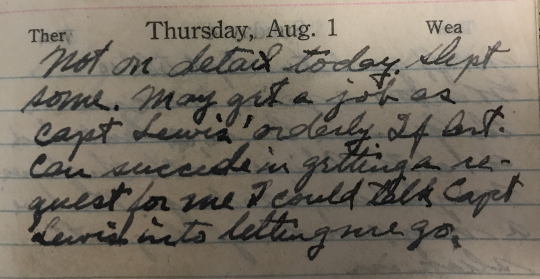 Ther Thursday, Aug. 1 Wea
Not on detail today. Slept
some. May get a job as
Capt Lewis' orderly. If
can succede in getting a re-
quest for me I could talk Capt
Lewis into letting me go.